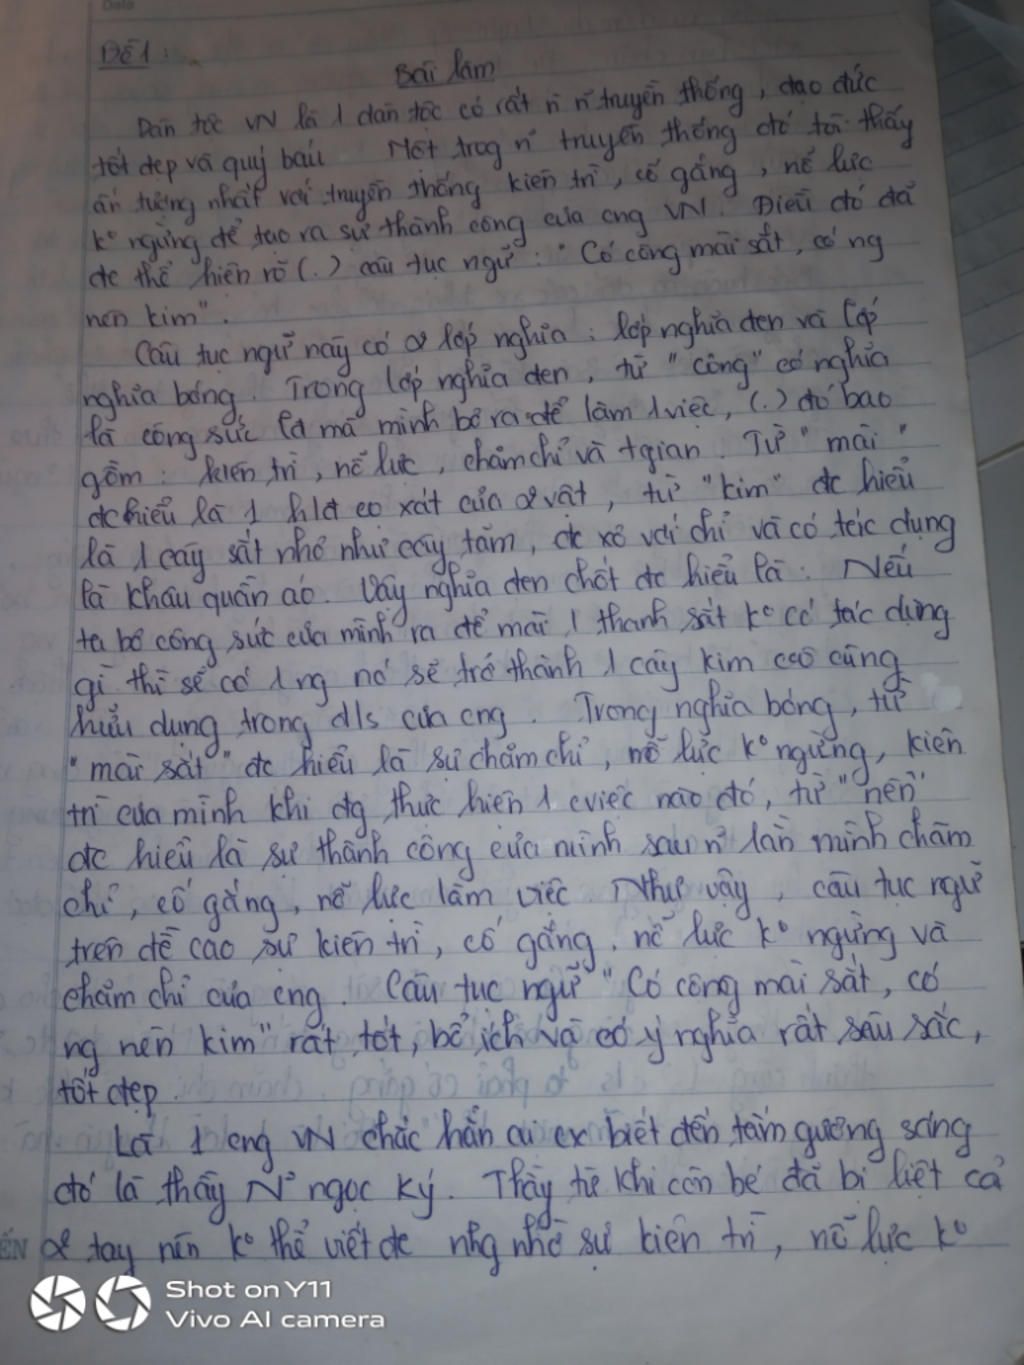 Đề 1:
Bài làm
Dân tộc VN là 1 dân tộc có rất n n~ truyền thống, đạo đức
tốt đẹp và quý báu Một trog n~ truyền thống đó tôi thấy
ấn tượng nhất với truyền thống kiên trì, cố gắng, nổ lực
k° ngừng để tạo ra sự thành công của cng VN. Điều đó đã
đc thể hiện rõ (.) câu tục ngữ: "Có công mài sắt, có ng
nên kim".
Câu tục ngữ này có 2 lớp nghĩa: lớp nghĩa đen và lớp
nghĩa bóng. Trong lớp nghĩa đen, từ "công" có nghĩa
là công sức mà mình bỏ ra để làm 1 việc, (.) đó bao
gồm: kiên trì, nổ lực, chăm chỉ và tgian. Từ "mài"
đc hiểu là 1 hđ cọ xát của 2 vật, từ "kim" đc hiểu
là 1 cây sắt nhỏ như cây tăm, đc xỏ với chỉ và có tác dụng
là khâu quần áo. Vậy nghĩa đen chốt đc hiểu là: Nếu
ta bỏ công sức của mình ra để mài 1 thanh sắt k° có tác dụng
gì thì sẽ có 1 ng nó sẽ trở thành 1 cây kim vô cùng
hữu dụng trong đ/s của cng. Trong nghĩa bóng, từ
"mài sắt" đc hiểu là sự chăm chỉ, nổ lực k° ngừng, kiên
trì của mình khi đg thực hiện 1 cviệc nào đó, từ "nên"
đc hiểu là sự thành công của mình sau n~ lần mình chăm
chỉ, cố gắng, nổ lực làm việc. Như vậy, câu tục ngữ
trên đề cao sự kiên trì, cố gắng, nổ lực k° ngừng và
chăm chỉ của cng. Câu tục ngữ "Có công mài sắt, có
ng nên kim" rất tốt, bổ ích và có ý nghĩa rất sâu sắc,
tốt đẹp.
Là 1 cng VN chắc hẳn ai cx biết đến tấm gương sáng
đó là thầy N~ ngọc Ký. Thầy từ khi còn bé đã bị liệt cả
2 tay nên k° thể viết đc nhg nhờ sự kiên trì, nổ lực k°
Shot on Y11
Vivo AI camera